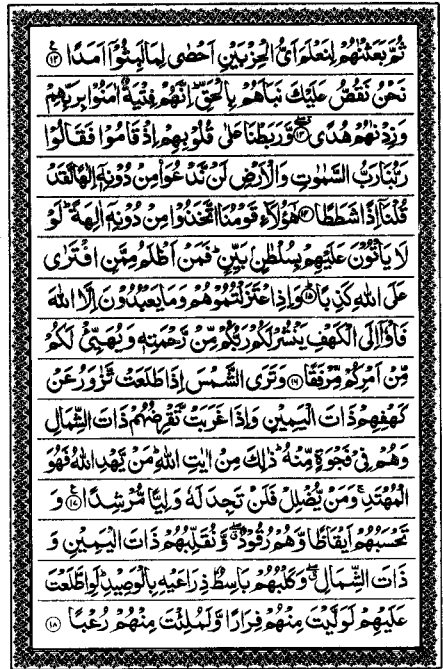 ثُمَّ بَعَثْنٰهُمْ لِنَعْلَمَ اَیُّ الْحِزْبَیْنِ اَحْصٰی لِمَا لَبِثُوْۤا اَمَدًا ﴿۱۲﴾
نَحْنُ نَقُصُّ عَلَیْكَ نَبَاَهُمْ بِالْحَقِّ ؕ اِنَّهُمْ فِتْیَةٌ اٰمَنُوْا بِرَبِّهِمْ
وَزِدْنٰهُمْ هُدًی ﴿۱۳﴾ وَّرَبَطْنَا عَلٰی قُلُوْبِهِمْ اِذْ قَامُوْا فَقَالُوْا
رَبُّنَا رَبُّ السَّمٰوٰتِ وَالْاَرْضِ لَنْ نَّدْعُوَا مِنْ دُوْنِهٖۤ اِلٰهًا لَّقَدْ
قُلْنَاۤ اِذًا شَطَطًا ﴿۱۴﴾ هٰۤؤُلَآءِ قَوْمُنَا اتَّخَذُوْا مِنْ دُوْنِهٖۤ اٰلِهَةً ؕ لَوْ
لَا یَاْتُوْنَ عَلَیْهِمْ بِسُلْطٰنٍۭ بَیِّنٍ ؕ فَمَنْ اَظْلَمُ مِمَّنِ افْتَرٰی
عَلَی اللّٰهِ كَذِبًا ﴿۱۵﴾ وَاِذِ اعْتَزَلْتُمُوْهُمْ وَمَا یَعْبُدُوْنَ اِلَّا اللّٰهَ
فَاْوٗۤا اِلَی الْكَهْفِ یَنْشُرْ لَكُمْ رَبُّكُمْ مِّنْ رَّحْمَتِهٖ وَیُهَیِّئْ لَكُمْ
مِّنْ اَمْرِكُمْ مِّرْفَقًا ﴿۱۶﴾ وَتَرَی الشَّمْسَ اِذَا طَلَعَتْ تَّزٰوَرُ عَنْ
كَهْفِهِمْ ذَاتَ الْیَمِیْنِ وَاِذَا غَرَبَتْ تَّقْرِضُهُمْ ذَاتَ الشِّمَالِ
وَهُمْ فِیْ فَجْوَةٍ مِّنْهُ ؕ ذٰلِكَ مِنْ اٰیٰتِ اللّٰهِ ؕ مَنْ یَّهْدِ اللّٰهُ فَهُوَ
الْمُهْتَدِ ۚ وَمَنْ یُّضْلِلْ فَلَنْ تَجِدَ لَهٗ وَلِیًّا مُّرْشِدًا ﴿۱۷﴾ وَ
تَحْسَبُهُمْ اَیْقَاظًا وَّهُمْ رُقُوْدٌ ۖۗ وَّنُقَلِّبُهُمْ ذَاتَ الْیَمِیْنِ وَ
ذَاتَ الشِّمَالِ ۖۗ وَكَلْبُهُمْ بَاسِطٌ ذِرَاعَیْهِ بِالْوَصِیْدِ ؕ لَوِ اطَّلَعْتَ
عَلَیْهِمْ لَوَلَّیْتَ مِنْهُمْ فِرَارًا وَّلَمُلِئْتَ مِنْهُمْ رُعْبًا ﴿۱۸﴾